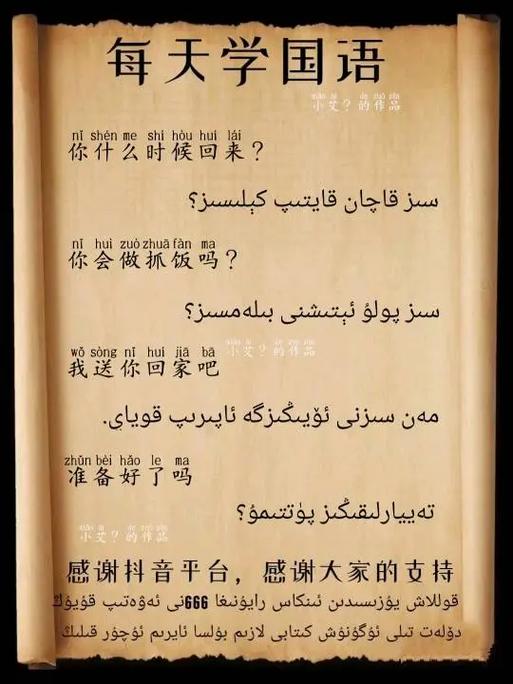 每天学国语
xiǎo ài de zuò pǐn
小艾？的作品
nǐ shén me shí hòu huí lái
你什么时候回来？
سىز قاچان قايتىپ كېلىسىز؟
nǐ huì zuò zhuā fàn ma
你会做抓饭吗？
سىز پولۇ ئېتىشنى بىلەمسىز؟
xiǎo ài de zuò pǐn
小艾？的作品
wǒ sòng nǐ huí jiā bā
我送你回家吧
مەن سىزنى ئۆيىڭىزگە ئاپىرىپ قوياي.
zhǔn bèi hǎo le ma
准备好了吗
تەييارلىقىڭىز پۈتتىمۇ؟
xiǎo ài de zuò pǐn
小艾？的作品
感谢抖音平台，感谢大家的支持
قوللاش يۈزىسىدىن ئىنكاس رايۇنىغا 666نى ئەۋەتىپ قۇيۇڭ
دۆلەت تىلى ئۈگۈنۈش كىتابى لازىم بولسا ئايرىم ئۇچۇر قىلىڭ